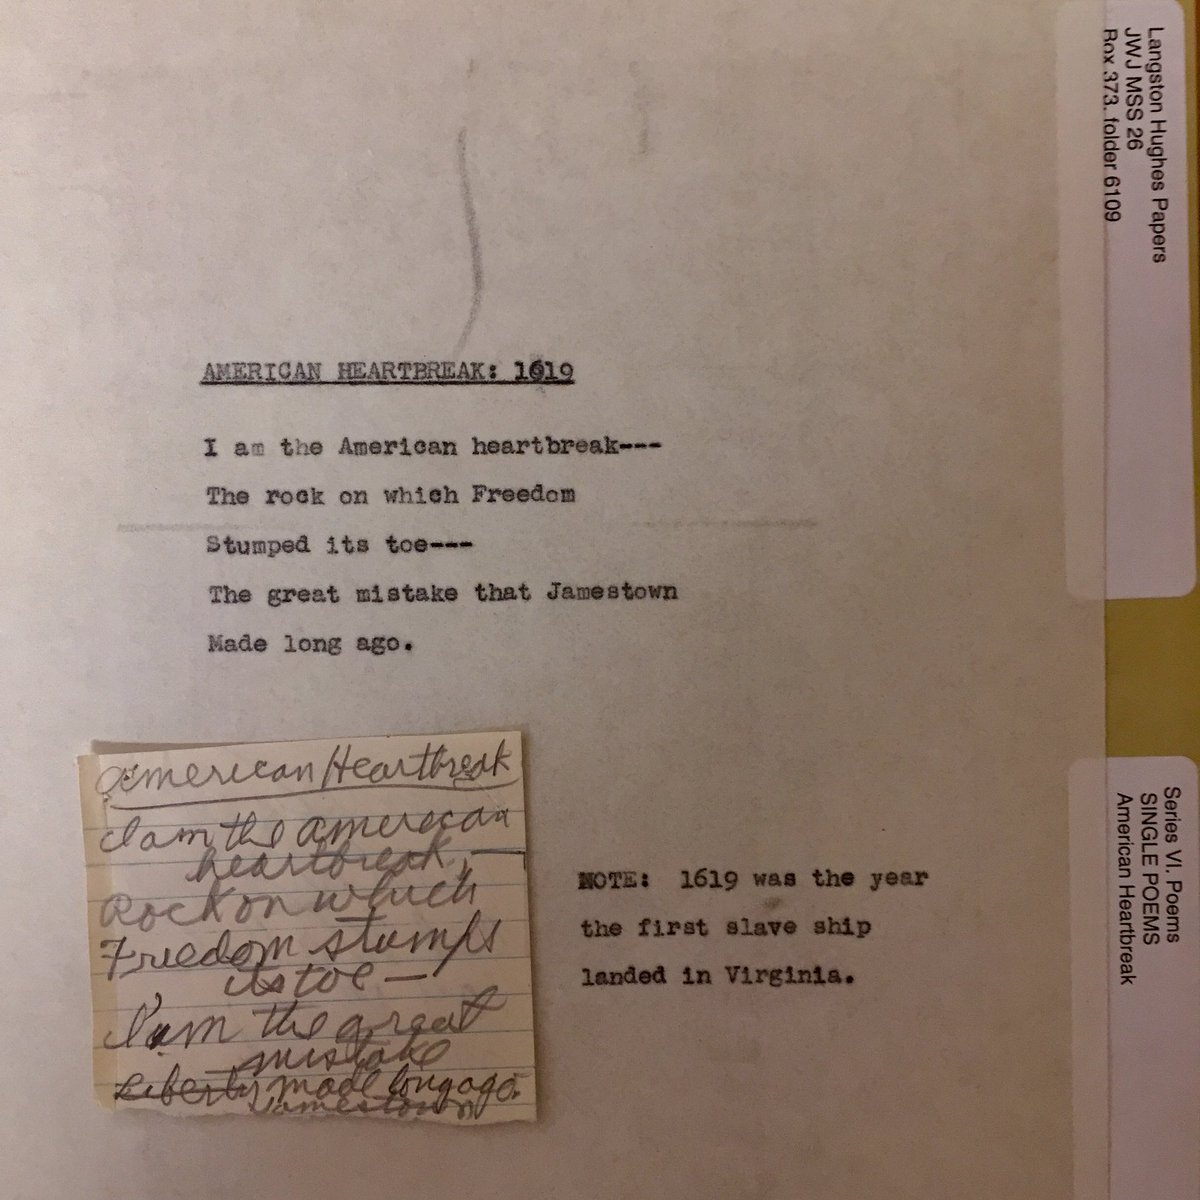 AMERICAN HEARTBREAK: 1619
I am the American heartbreak---
The rock on which Freedom
Stumped its toe---
The great mistake that Jamestown
Made long ago.
American Heartbreak
I am the American
heartbreak, —
Rock on which
Freedom stumps
its toe —
I'm the great
mistake
Liberty made long ago.
Jamestown
NOTE: 1619 was the year
the first slave ship
landed in Virginia.
Langston Hughes Papers
JWJ MSS 26
Box 373, folder 6109
Series VI. Poems
SINGLE POEMS
American Heartbreak